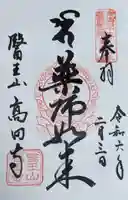 奉拝
令和六年
二月三日
薬师如来
醫王山 高田寺